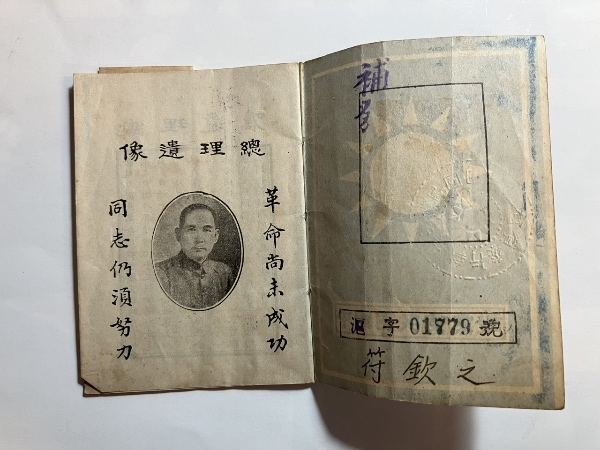 總理遺像
革命尚未成功
同志仍須努力
補号
字 01779 號
符欽之